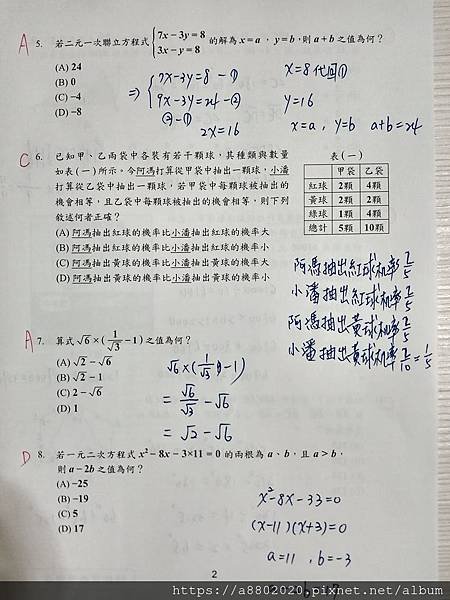 A 5. 若二元一次聯立方程式 {7x－3y＝8 的解為 x＝a ， y＝b，則 a＋b 之值為何？
3x－y＝8
(A) 24
(B) 0
(C) －4
(D) －8
⇒ {7x-3y=8 -①
9x-3y=24 -②
②-①
2x=16
x=8 代回①
y=16
x=a , y=b a+b=24
C 6. 已知甲、乙兩袋中各裝有若干顆球，其種類與數量
如表(一)所示。今阿馮打算從甲袋中抽出一顆球，小潘
打算從乙袋中抽出一顆球，若甲袋中每顆球被抽出的
機會相等，且乙袋中每顆球被抽出的機會相等，則下列
敘述何者正確？
(A) 阿馮抽出紅球的機率比小潘抽出紅球的機率大
(B) 阿馮抽出紅球的機率比小潘抽出紅球的機率小
(C) 阿馮抽出黃球的機率比小潘抽出黃球的機率大
(D) 阿馮抽出黃球的機率比小潘抽出黃球的機率小
表(一)
甲袋 乙袋
紅球 2顆 4顆
黃球 2顆 2顆
綠球 1顆 4顆
總計 5顆 10顆
阿馮抽出紅球機率 2/5
小潘抽出紅球機率 2/5
阿馮抽出黃球機率 2/5
小潘抽出黃球機率 2/10 = 1/5
A 7. 算式 √6×(1/√3－1) 之值為何？
(A) √2－√6
(B) √2－1
(C) 2－√6
(D) 1
√6×(1/√3-1)
= √6/√3 - √6
= √2-√6
D 8. 若一元二次方程式 x²－8x－3×11＝0 的兩根為 a、b，且 a＞b，
則 a－2b 之值為何？
(A) －25
(B) －19
(C) 5
(D) 17
x²-8x-33=0
(x-11)(x+3)=0
a=11 , b=-3
2
https://a8802020.pixnet.net/album